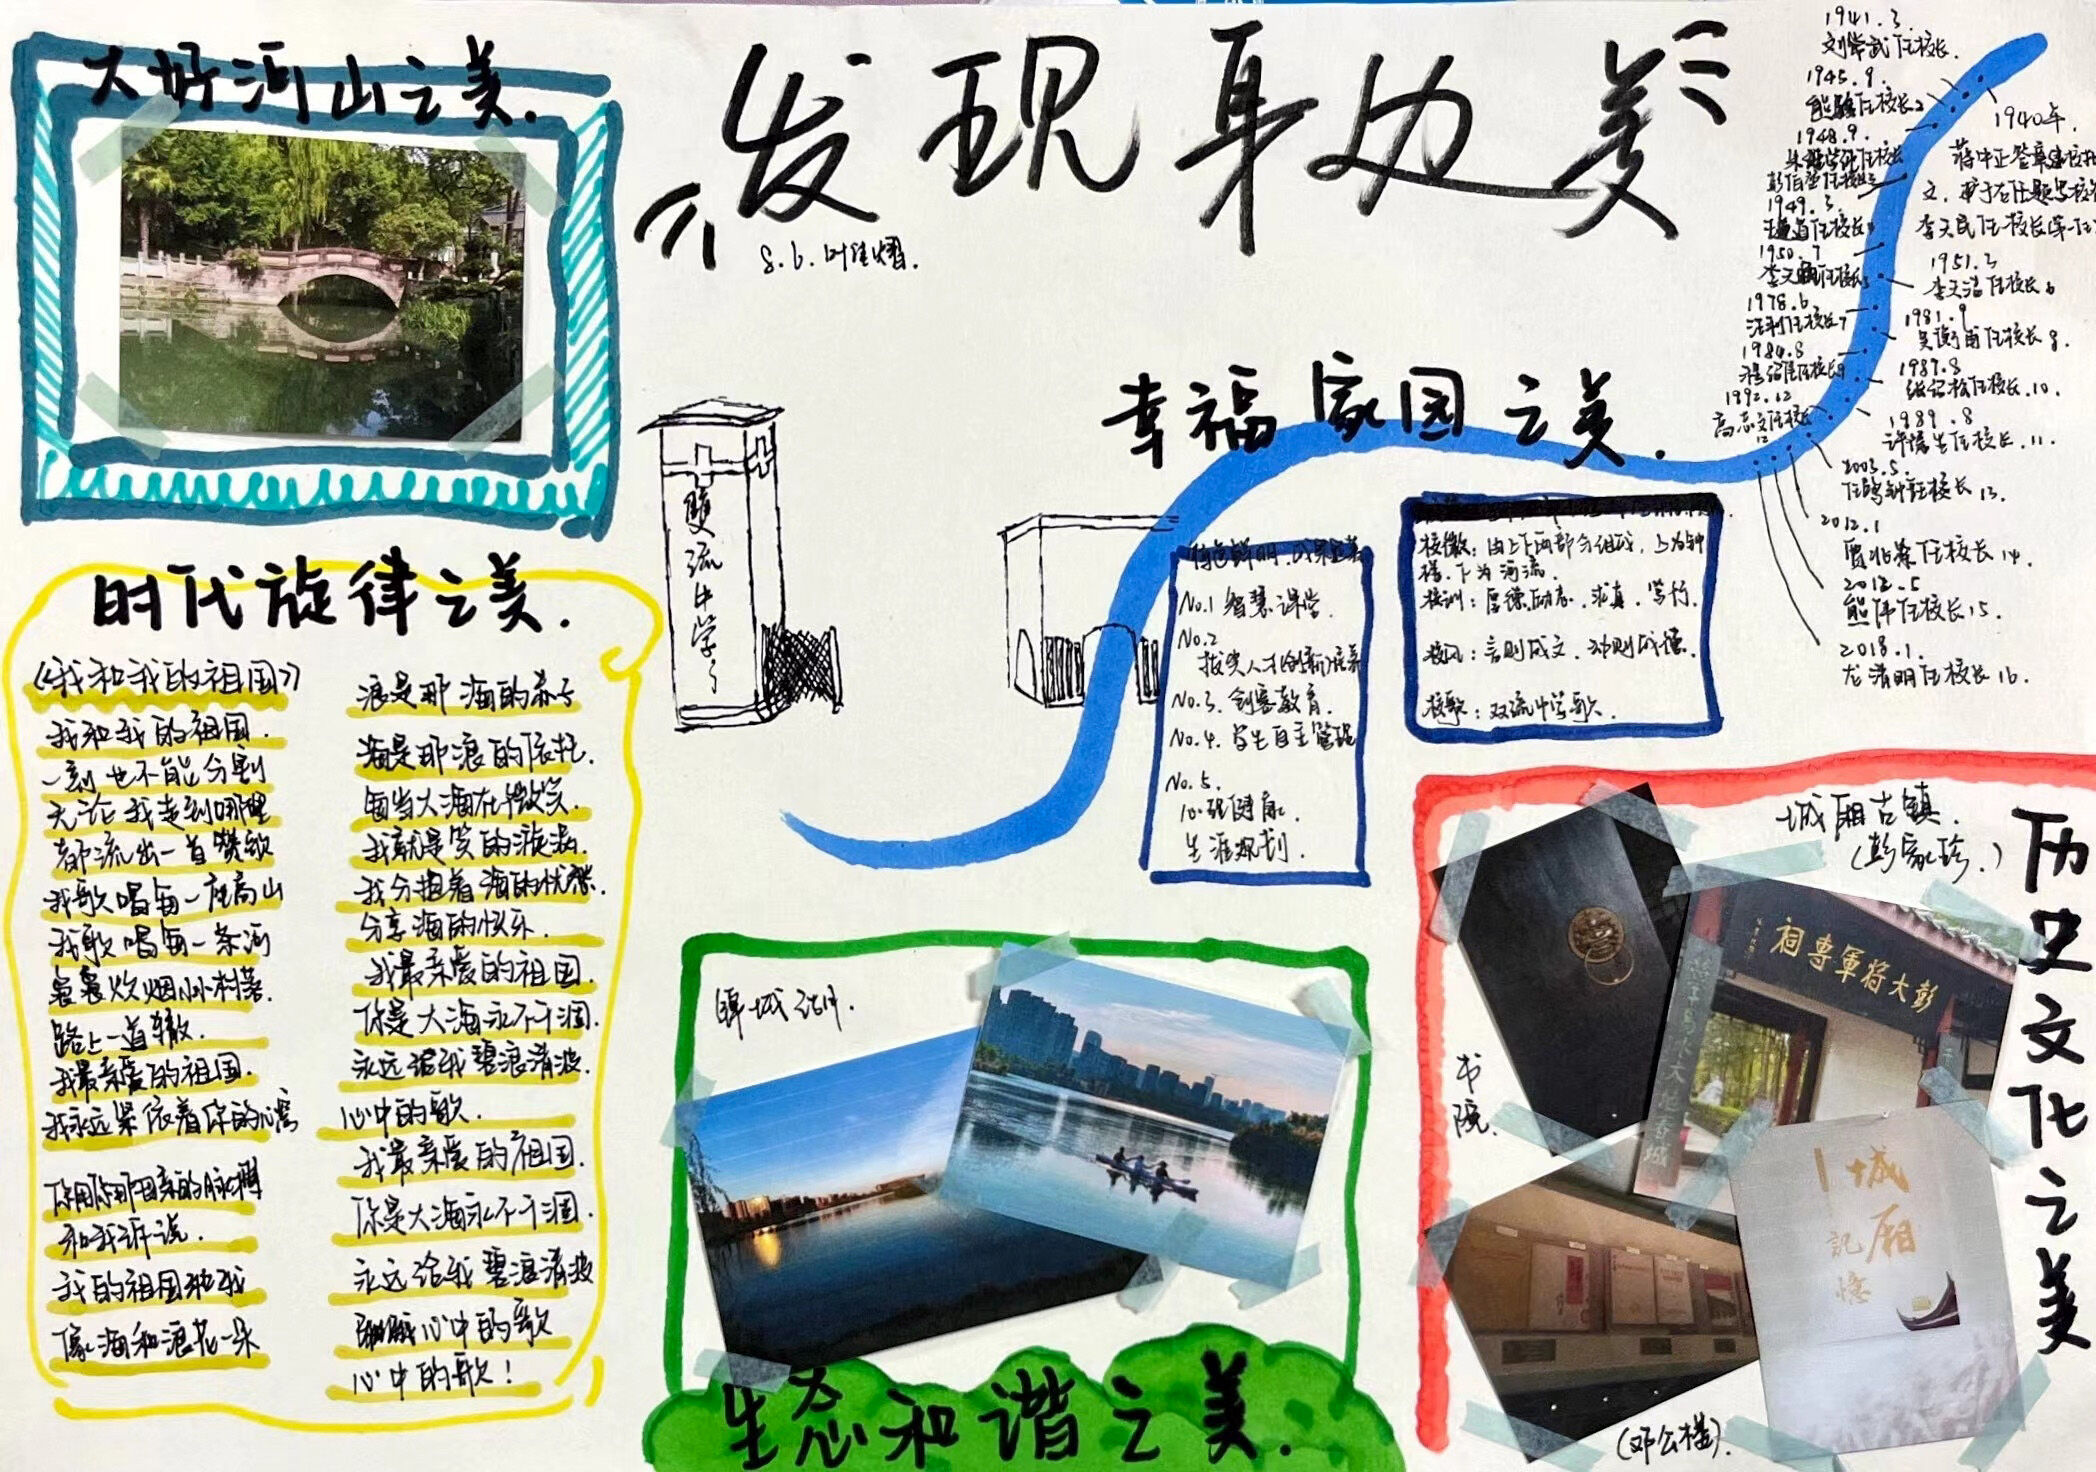 大好河山之美.
发现身边美
8.6.
时代旋律之美.
《我和我的祖国》
我和我的祖国.
一刻也不能分割
无论我走到哪里
都流出一首赞歌
我歌唱每一座高山
我歌唱每一条河
袅袅炊烟小小村落.
路上一道辙.
我最亲爱的祖国.
我永远紧依着你的心窝
你用你那母亲的脉搏
和我诉说.
我的祖国和我
像海和浪花一朵
浪是那海的赤子
海是那浪的依托.
每当大海在微笑.
我就是笑的漩涡.
我分担着海的忧愁.
分享海的快乐.
我最亲爱的祖国.
你是大海永不干涸.
永远给我碧浪清波.
心中的歌.
我最亲爱的祖国.
你是大海永不干涸.
永远给我碧浪清波
心中的歌
心中的歌!
雙流中学
幸福家园之美.
特色鲜明.成果显著
No.1 智慧课堂.
No.2
拔尖人才(创新)培养
No.3. 创客教育.
No.4. 学生自主管理
No.5.
心理健康.
生涯规划.
校徽:由上下两部分组成,上为钟
楼.下为河流.
校训:厚德.励志.求真.笃行.
校风:言则成文.动则成德.
校歌:双流中学歌.
1941.3
任校长.
1945.9.
1948.9.
1949.3.
1950.7
1978.6
1984.8
1992.12
高志文任校长
12
1940年.
蒋中正签章
李天民任校长
1951.3
任校长6
1981.9
任校长8.
1987.8
任校长.10.
1989.8
任校长.11.
2003.5.
任校长13.
2012.1
任校长14.
2012.5
熊伟任校长15.
2018.1.
龙清明任校长16.
生态和谐之美.
历史文化之美
城厢古镇.
(彭家珍.)
书院.
彭大将軍專祠
城厢
記憶
(邓公楼).